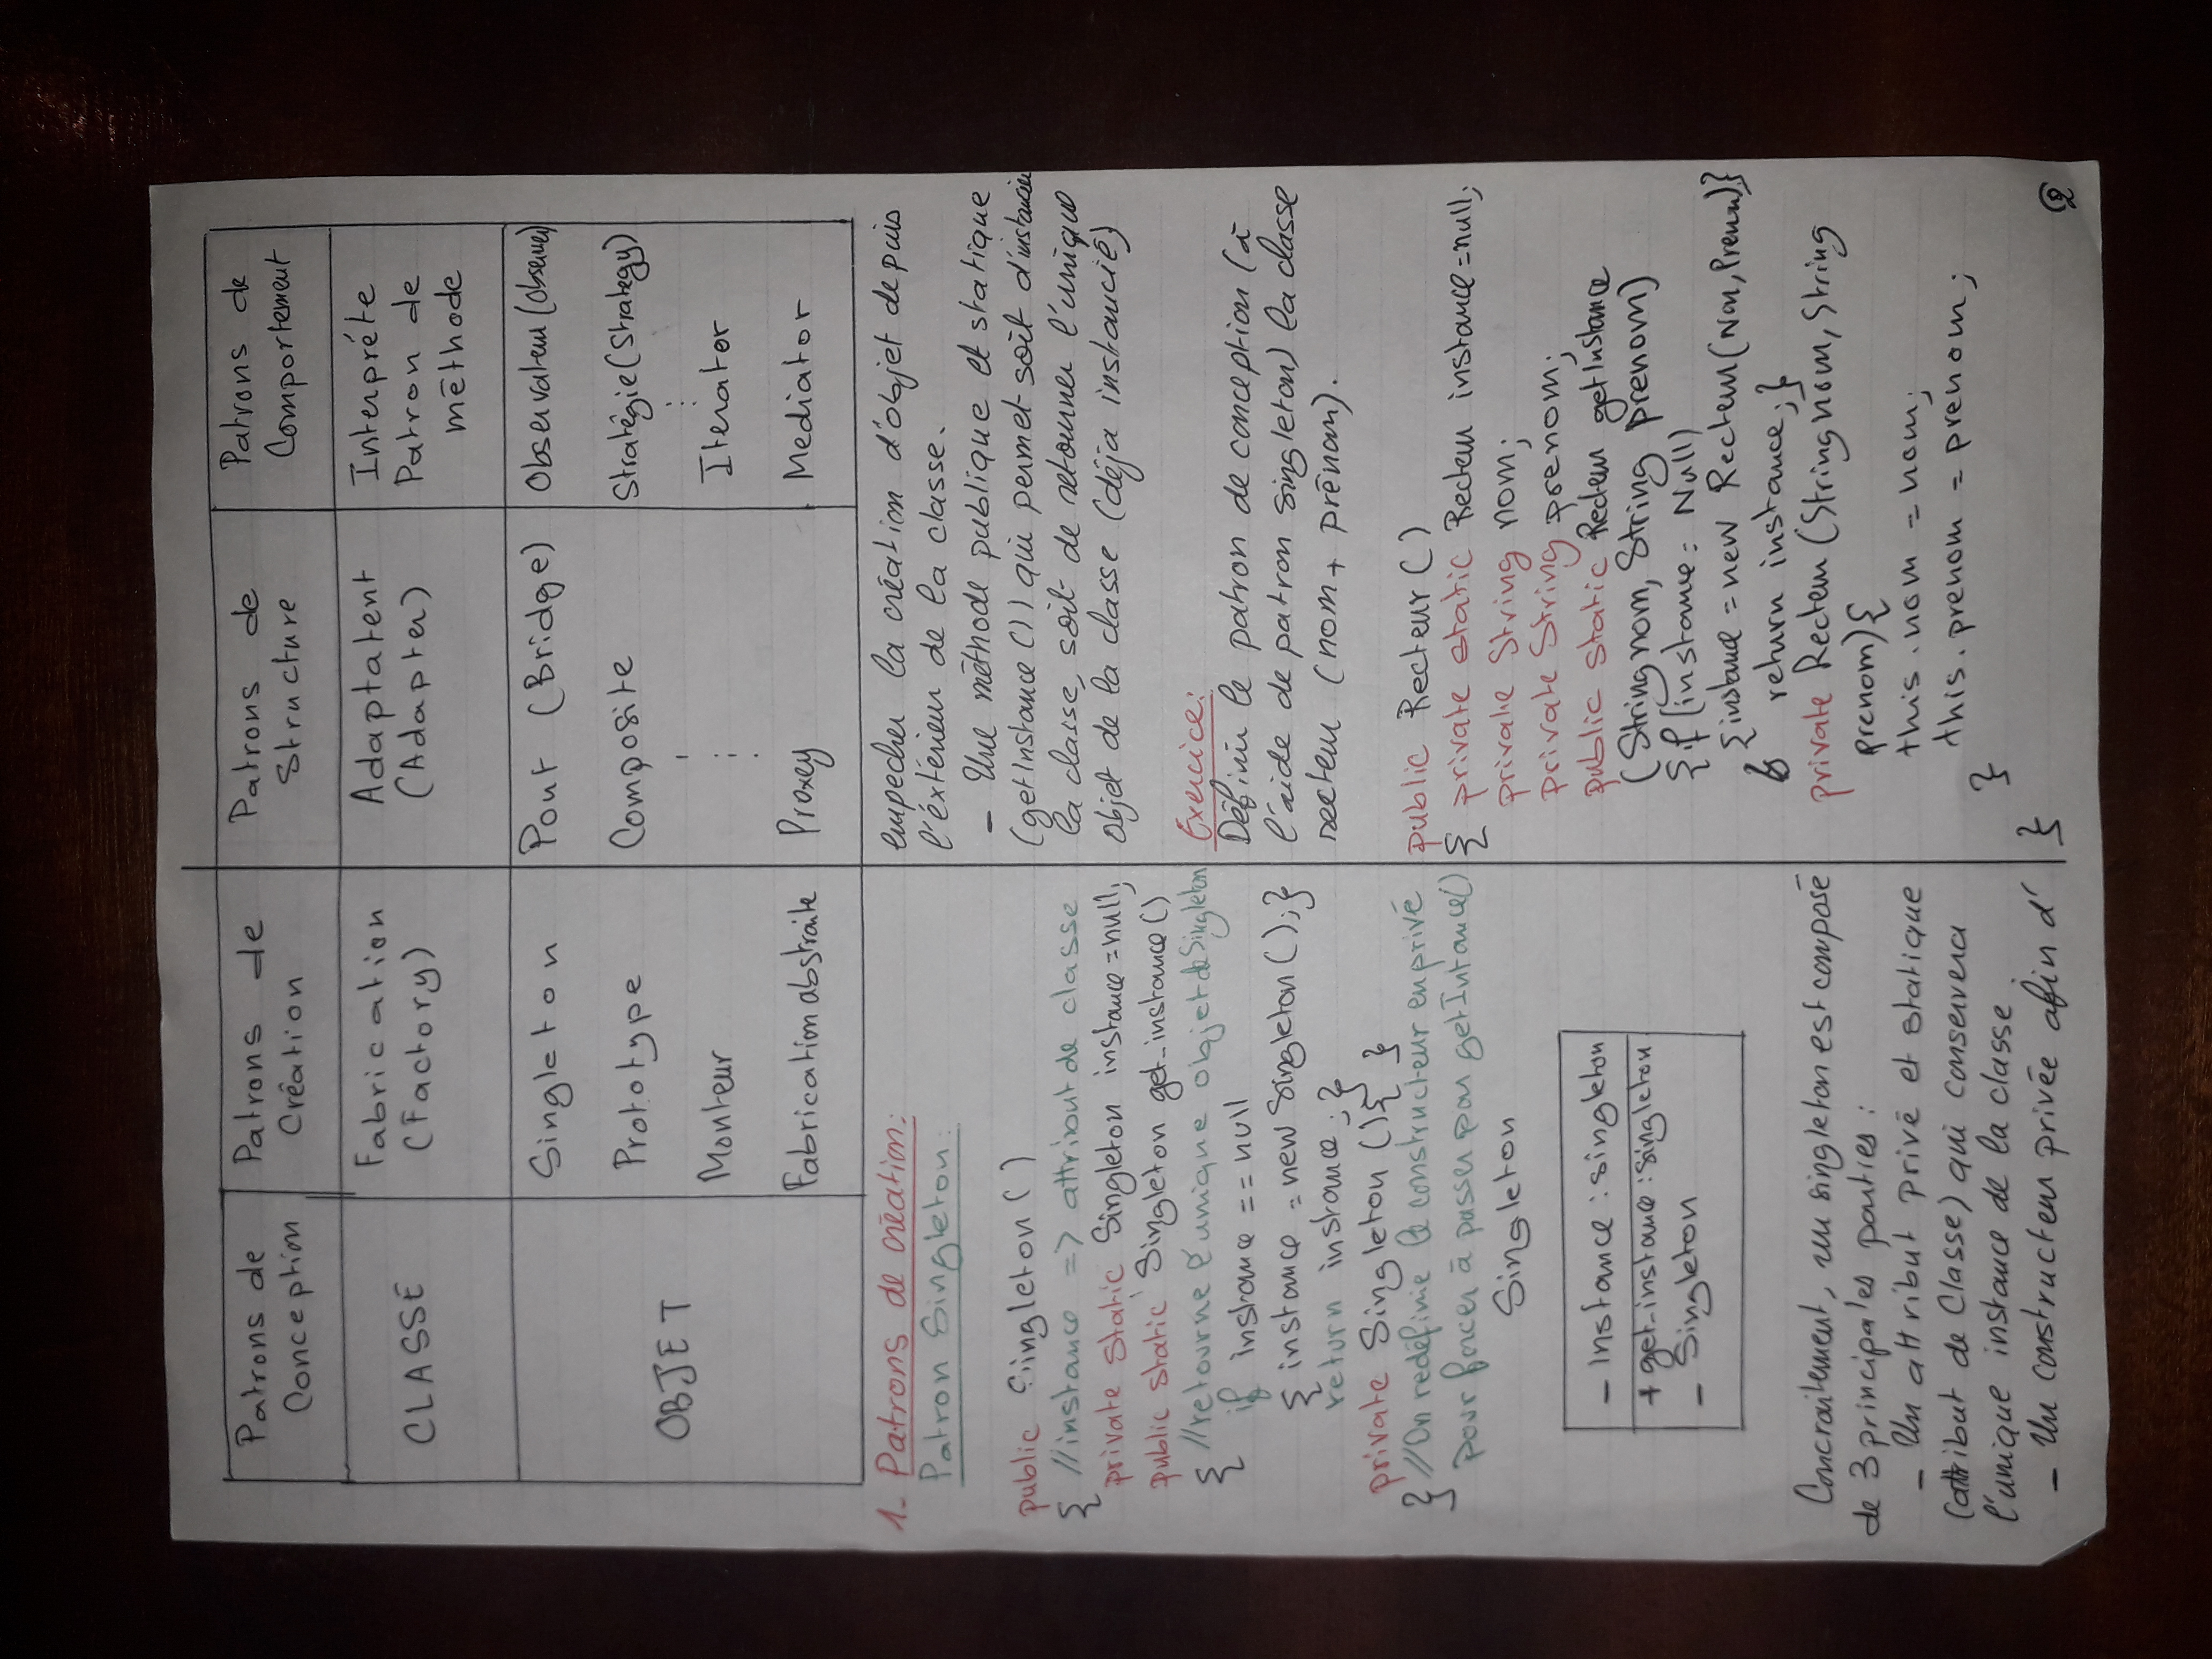 Patrons de
Conception
Patrons de
Création
Patrons de
Structure
Patrons de
Comportement
CLASSE
Fabrication
(Factory)
Adaptatent
(Adapter)
Interpréte
Patron de
méthode
OBJET
Singleton
Prototype
Monteur
Fabrication abstraite
Pont (Bridge)
Composite
Proxey
Observateur (Observer)
Stratégie (Strategy)
Iterator
Mediator
1- Patrons de création:
Patron Singleton:
public Singleton ()
{ //instance => attribut de classe
private static Singleton instance = null;
public static Singleton get_instance ()
{ //retourne l'unique objet de Singleton
if instance == null
{ instance = new Singleton (); }
return instance ; }
private Singleton () { }
} //On redéfinie le constructeur en privé
pour forcer à passer par getIntance()
Singleton
- Instance : singleton
+ get_instance : singleton
- Singleton
Concraitement, un singleton est composé
de 3 principales parties :
- Un attribut privé et statique
(attribut de Classe) qui conservera
l'unique instance de la classe.
- Un constructeur privée afin d'
empecher la création d'objet depuis
l'éxtérieur de la classe.
- Une méthode publique et statique
(getInstance ()) qui permet soit d'instancier
la classe, soit de retourner l'unique
objet de la classe (déja instancié)
Exercice:
Définir le patron de conception (à
l'aide de patron singleton) la classe
recteur (nom + prénom).
public Recteur ()
{ private static Recteur instance = null;
private String nom;
private String prenom;
public static Recteur getInstance
(String nom, String prenom)
{ if (instance = Null)
{ instance = new Recteur (Nom, Prenom) }
return instance; }
private Recteur (String nom, String
prenom) {
this.nom = nom;
this.prenom = prenom;
}
}
2